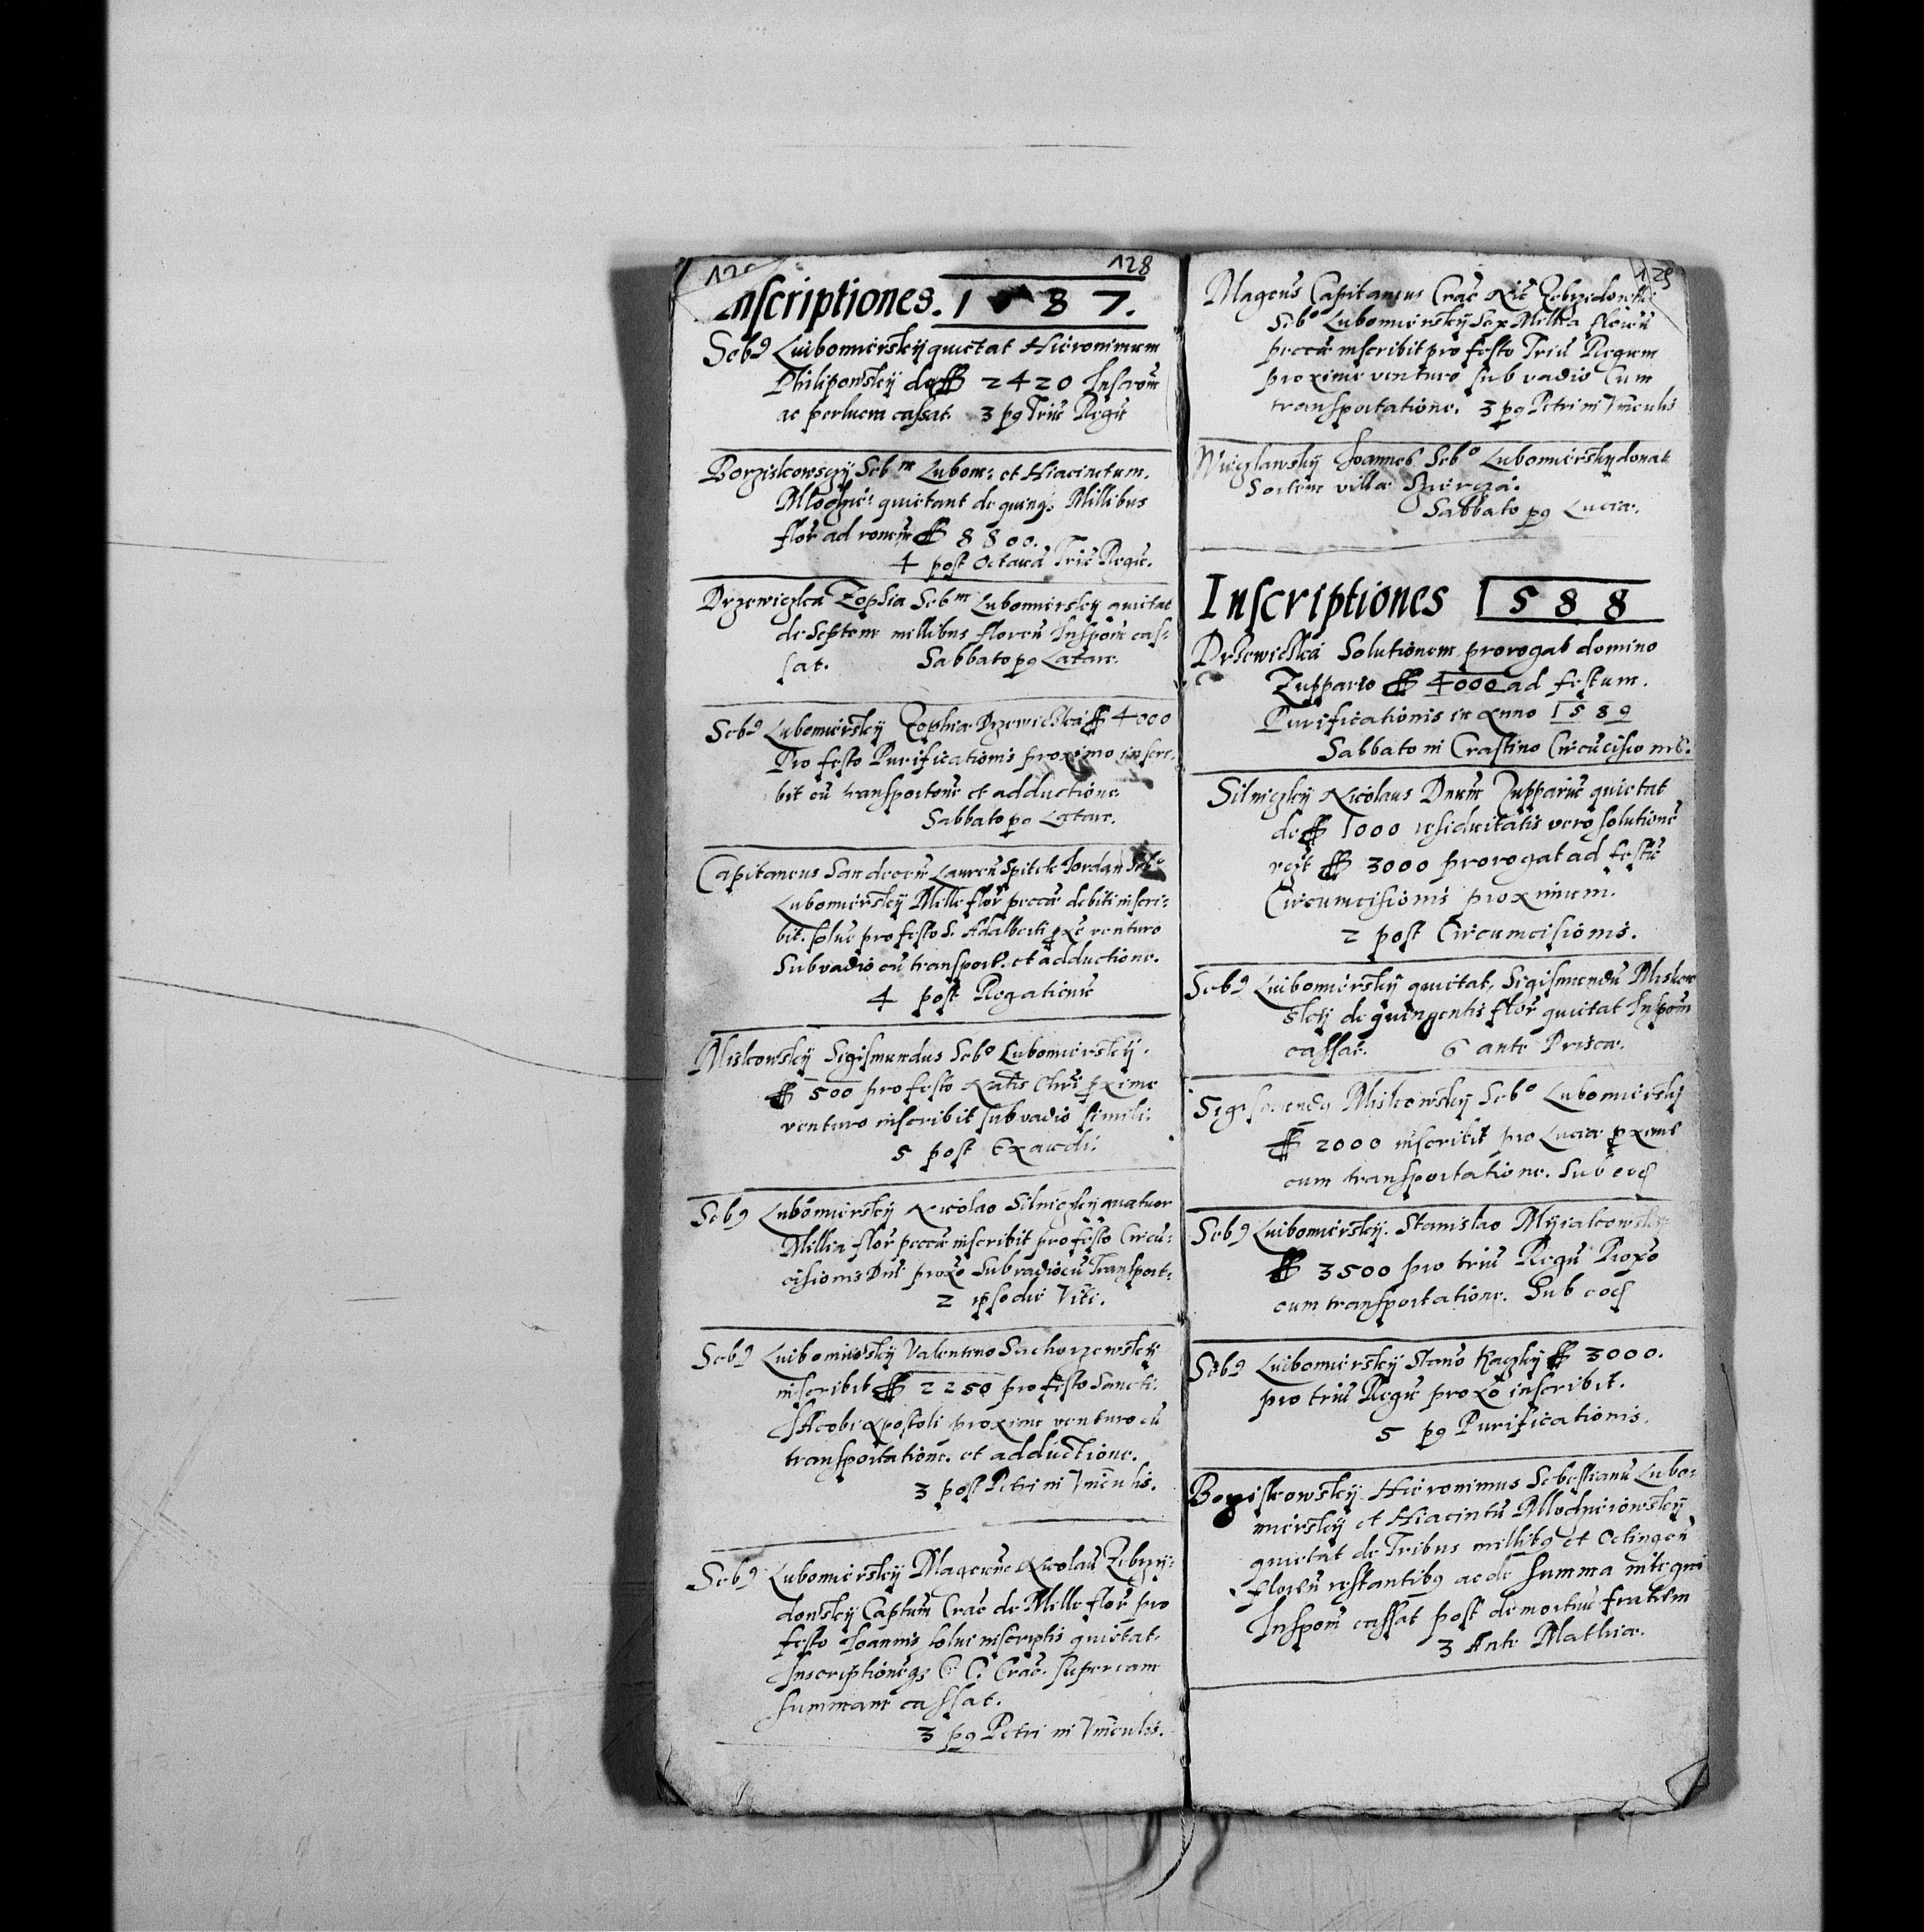 128
Inscriptiones. 1587.
Seb9 Luibomierskij quietat Hieronimum
Philipowskij de ff 2420 Inscrom̄
ac perlucra cassat. 3 p9 Triū Regū
Borziskowsczij Seb m Lubom: et Hiacintum.
Młodzie: quietant de quinq3 Millibus
flor̄ ad ronem̄ ff 8800.
4 post Octauā Triū Regū.
Drzewiczka Zophia Seb m Lubomierskij quietat
de Septem millibus florenū Inspom̄ cas:
sat. Sabbato p9 Lætare.
Seb9 Lubomierskij Zophiæ Drzewickiei ff 4000
Pro festo Purificationis proximo inscri
bit cū transportone et adductione
Sabbato p9 Lætare.
Capitaneus Sandecen̄ Lauren̄ Spitek Iordan Seb o
Lubomierskij Mille flor̄ peccū debiti inscri:
bit. solue pro festo S. Adalberti pxe venturo
Sub vadio cū transport. et adductione.
4 post Rogationū
Miskowskij Sigismundus Seb o Lubomierskij.
ff 500 pro festo Natis Chri pxime
venturo inscribit sub vadio simili.
5 post Exaudi.
Seb9 Lubomierskij Nicolao Silniczkij quatuor
Millia flor̄ peccū inscribit pro festo Circū:
cisionis Dni proxo Sub vadio cū Transport:
2 ipso die Viti.
Seb9 Luibomirskij Valentino Sachorzewskij
inscribit ff 2250 pro festo Sancti
Iacobi Apostoli proxime venturo cū
transportatione. et adductione.
3 post Petri in Vinculis.
Seb9 Lubomierskij Magcum Nicolaū Zebrzi:
dowskij Captum Crac de Mille flor̄ pro
festo Ioannis solui inscriptis quietat.
Inscriptionēq3 C. C. Crac. super eam
summam cassat.
3 p9 Petri in Vinculis.
129
Magcus Capitaneus Crac Nic Zebrzidowski
Seb o Lubomierskij Sex Millia floren̄
peccū inscribit pro festo Triū Regum
proxime venturo sub vadio Cum
transportatione. 3 p9 Petri in Vinculis
Ioannes. Seb o Lubomierskij donat
Sortem villæ
Sabbato p9 Luciæ.
Inscriptiones 1588
Drzewicka Solutionem prorogat domino
Zuppario ff 4000 ad festum.
Purificationis in Anno 1589
Sabbato in Crastino Circūcisionis.
Silniczkij Nicolaus Dnum Zuppariū quietat
de ff 1000 residuitatis vero solutionē
ff 3000 prorogat ad festū
Circumcisionis proximum.
2 post Circumcisionis.
Seb9 Luibomierskij quietat, Sigismundū Miskow
skij de quingentis flor̄ quietat Inspom̄
cassat. 6 ante Priscæ.
Sigismund9 Miskowskij Seb o Lubomierskij
ff 2000 inscribit pro Luciæ pxime
cum transportatione. Sub eod
Seb9 Luibomierskij. Stanislao Mijialkowskij
ff 3500 pro triū Regū Proxo
cum transportatione. Sub eod
Seb9 Luibomierskij Stano Raczkij ff 3000.
pro triū Regū proxo inscribit.
5 p9 Purificationis.
Borziskowskij Hieronimus Sebestianū Lubo:
mierskij et Hiacintū Młodzieiowskij
quietat de Tribus millib9 et Octingen̄
floren̄ restantib9 ac de summa integri
Inspom̄ cassat post demortuū fratrem
3 Ante Mathiæ.